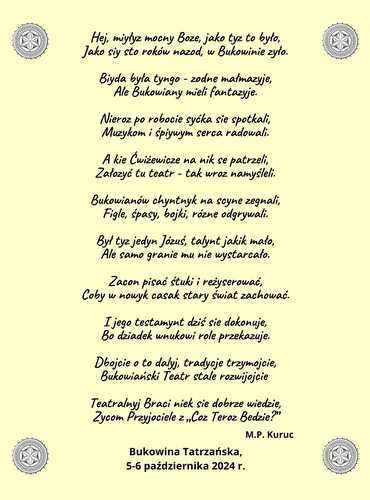 Hej, miyłyz mocny Boze, jako tyz to było,
Jako siy sto roków nazod, w Bukowinie zyło.
Biyda była tyngo - zodne małmazyje,
Ale Bukowiany mieli fantazyje.
Nieroz po robocie syćka sie spotkali,
Muzykom i śpiywym serca radowali.
A kie Ćwizewicze na nik se patrzeli,
Załozyć tu teatr - tak wroz namyśleli.
Bukowianów chyntnyk na scyne zegnali,
Figle, śpasy, bojki, rózne odgrywali.
Był tyz jedyn Józuś, talynt jakik mało,
Ale samo granie mu nie wystarcało.
Zacon pisać śtuki i reżyserować,
Coby w nowyk casak stary świat zachować.
I jego testamynt dziś sie dokonuje,
Bo dziadek wnukowi role przekazuje.
Dbojcie o to dalyj, tradycje trzymojcie,
Bukowiański Teatr stale rozwijojcie
Teatralnyj Braci niek sie dobrze wiedzie,
Zycom Przyjociele z „Coz Teroz Bedzie?"
M.P. Kuruc
Bukowina Tatrzańska,
5-6 października 2024 r.